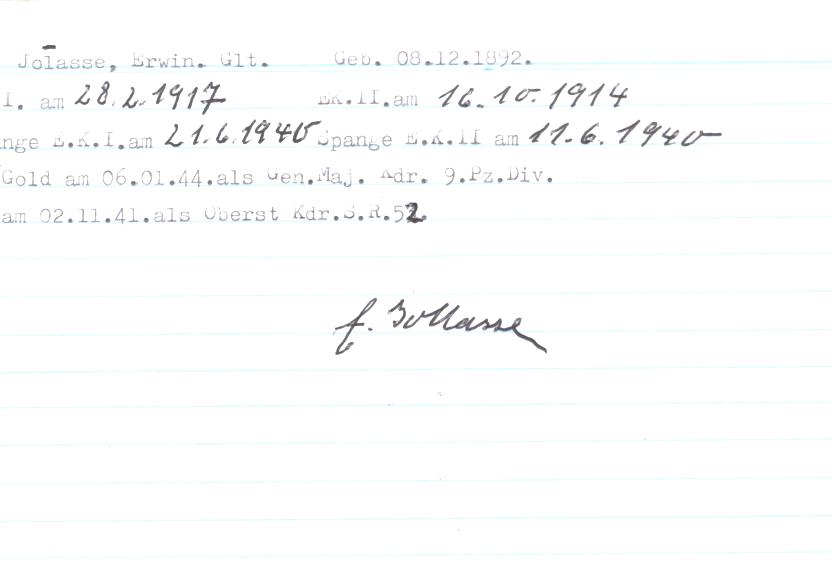 Jolasse, Erwin. Glt. Geb. 08.12.1892.
I. am 28.2.1917 EK.II.am 16.10.1914
nge E.K.I.am 21.6.1940 Spange E.K.II am 11.6.1940
Gold am 06.01.44.als Gen.Maj. Kdr. 9.Pz.Div.
am 02.11.41.als Oberst Kdr.S.R.52
E. Jollasse